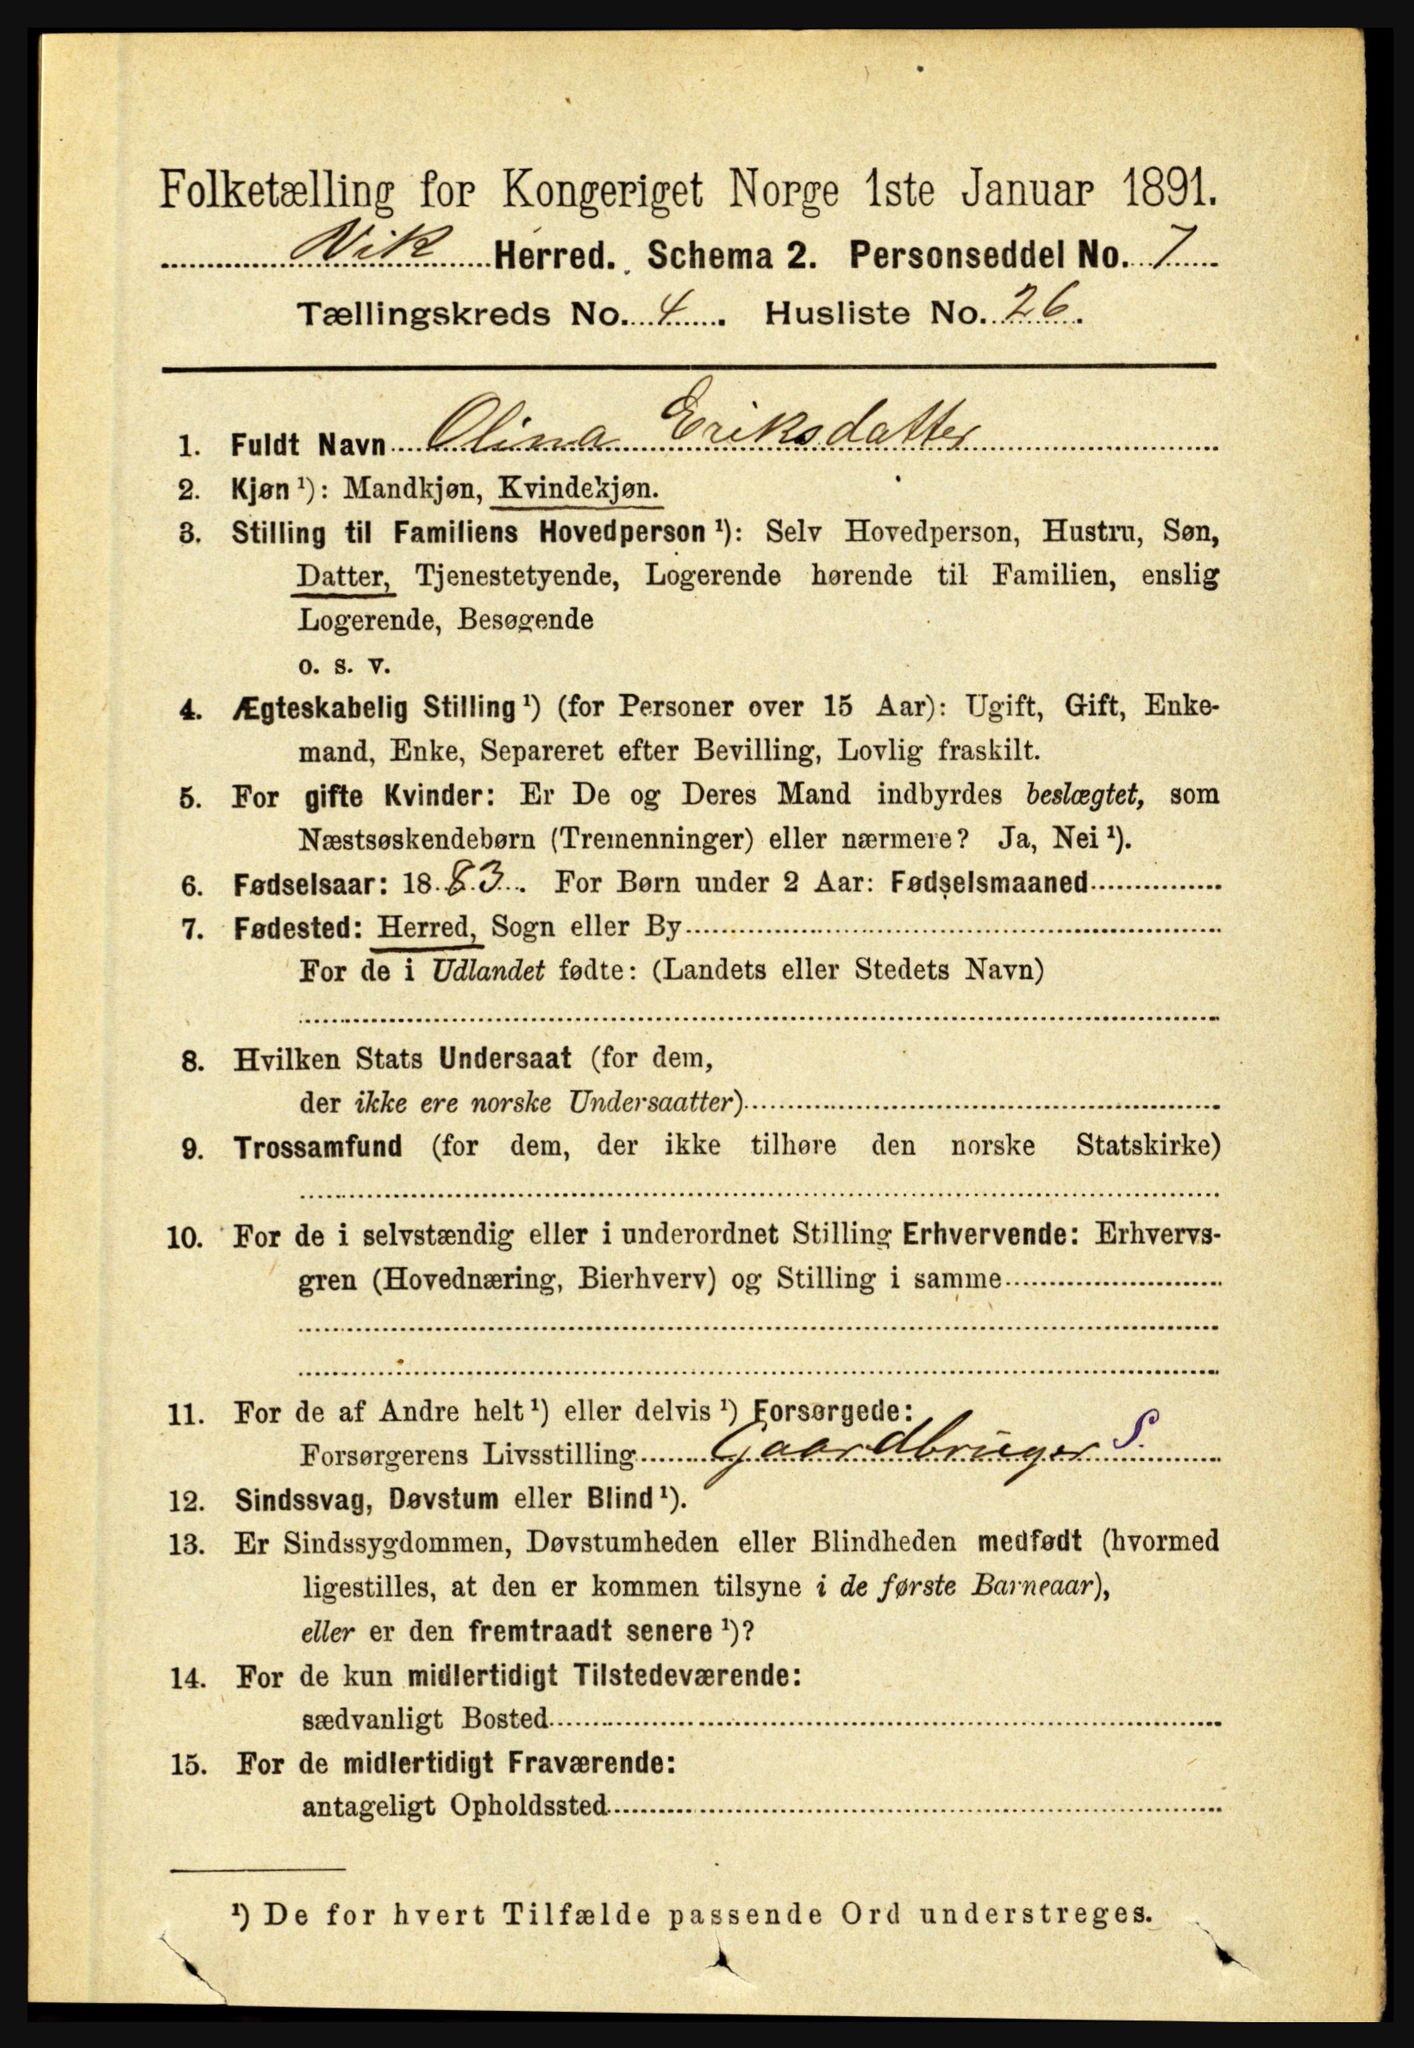 Folketælling for Kongeriget Norge 1ste Januar 1891.
Vik Herred. Schema 2. Personseddel No. 7
Tællingskreds No. 4. Husliste No. 26.
1. Fuldt Navn Olina Eriksdatter
2. Kjøn ¹): Mandkjøn, Kvindekjøn.
3. Stilling til Familiens Hovedperson ¹): Selv Hovedperson, Hustru, Søn,
Datter, Tjenestetyende, Logerende hørende til Familien, enslig
Logerende, Besøgende
o. s. v.
4. Ægteskabelig Stilling ¹) (for Personer over 15 Aar): Ugift, Gift, Enke-
mand, Enke, Separeret efter Bevilling, Lovlig fraskilt.
5. For gifte Kvinder: Er De og Deres Mand indbyrdes beslægtet, som
Næstsøskendebørn (Tremenninger) eller nærmere? Ja, Nei ¹).
6. Fødselsaar: 1883. For Børn under 2 Aar: Fødselsmaaned
7. Fødested: Herred, Sogn eller By
For de i Udlandet fødte: (Landets eller Stedets Navn)
8. Hvilken Stats Undersaat (for dem,
der ikke ere norske Undersaatter)
9. Trossamfund (for dem, der ikke tilhøre den norske Statskirke)
10. For de i selvstændig eller i underordnet Stilling Erhvervende: Erhvervs-
gren (Hovednæring, Bierhverv) og Stilling i samme
11. For de af Andre helt ¹) eller delvis ¹) Forsørgede:
Forsørgerens Livsstilling Gaardbruger S.
12. Sindssvag, Døvstum eller Blind ¹).
13. Er Sindssygdommen, Døvstumheden eller Blindheden medfødt (hvormed
ligestilles, at den er kommen tilsyne i de første Barneaar),
eller er den fremtraadt senere ¹)?
14. For de kun midlertidigt Tilstedeværende:
sædvanligt Bosted
15. For de midlertidigt Fraværende:
antageligt Opholdssted
¹) De for hvert Tilfælde passende Ord understreges.